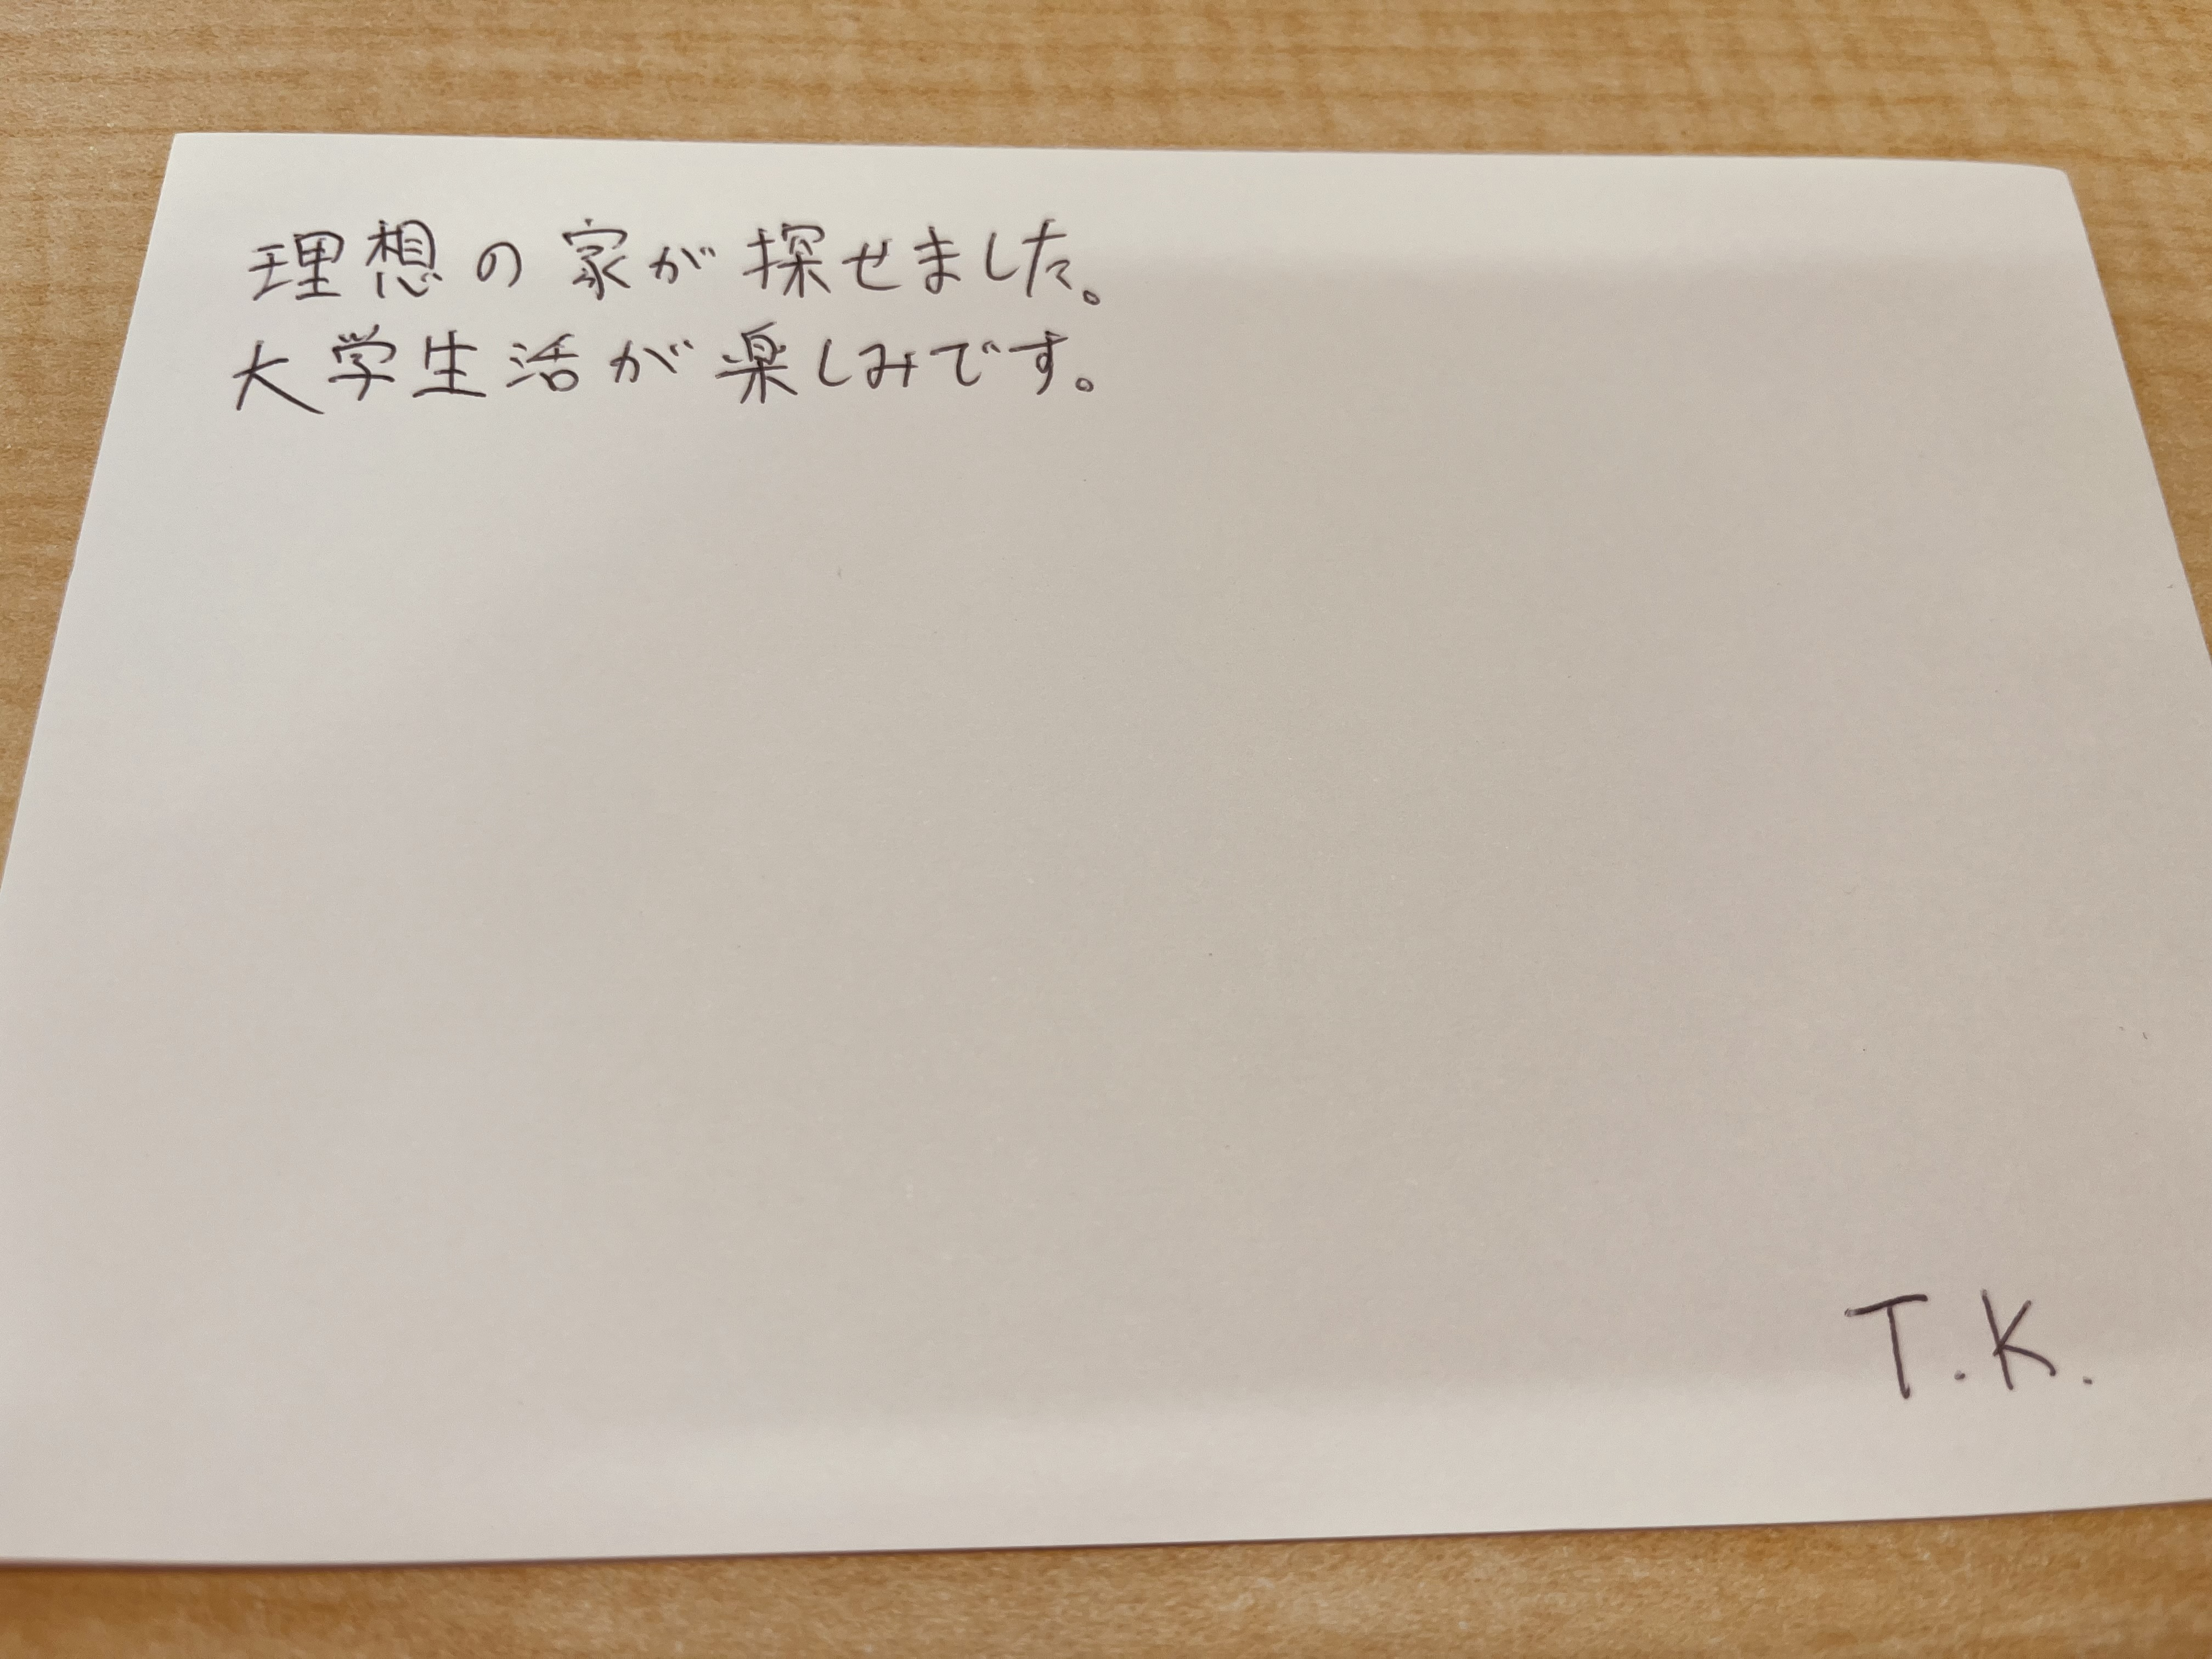 理想の家が探せました。
大学生活が楽しみです。
T.K.